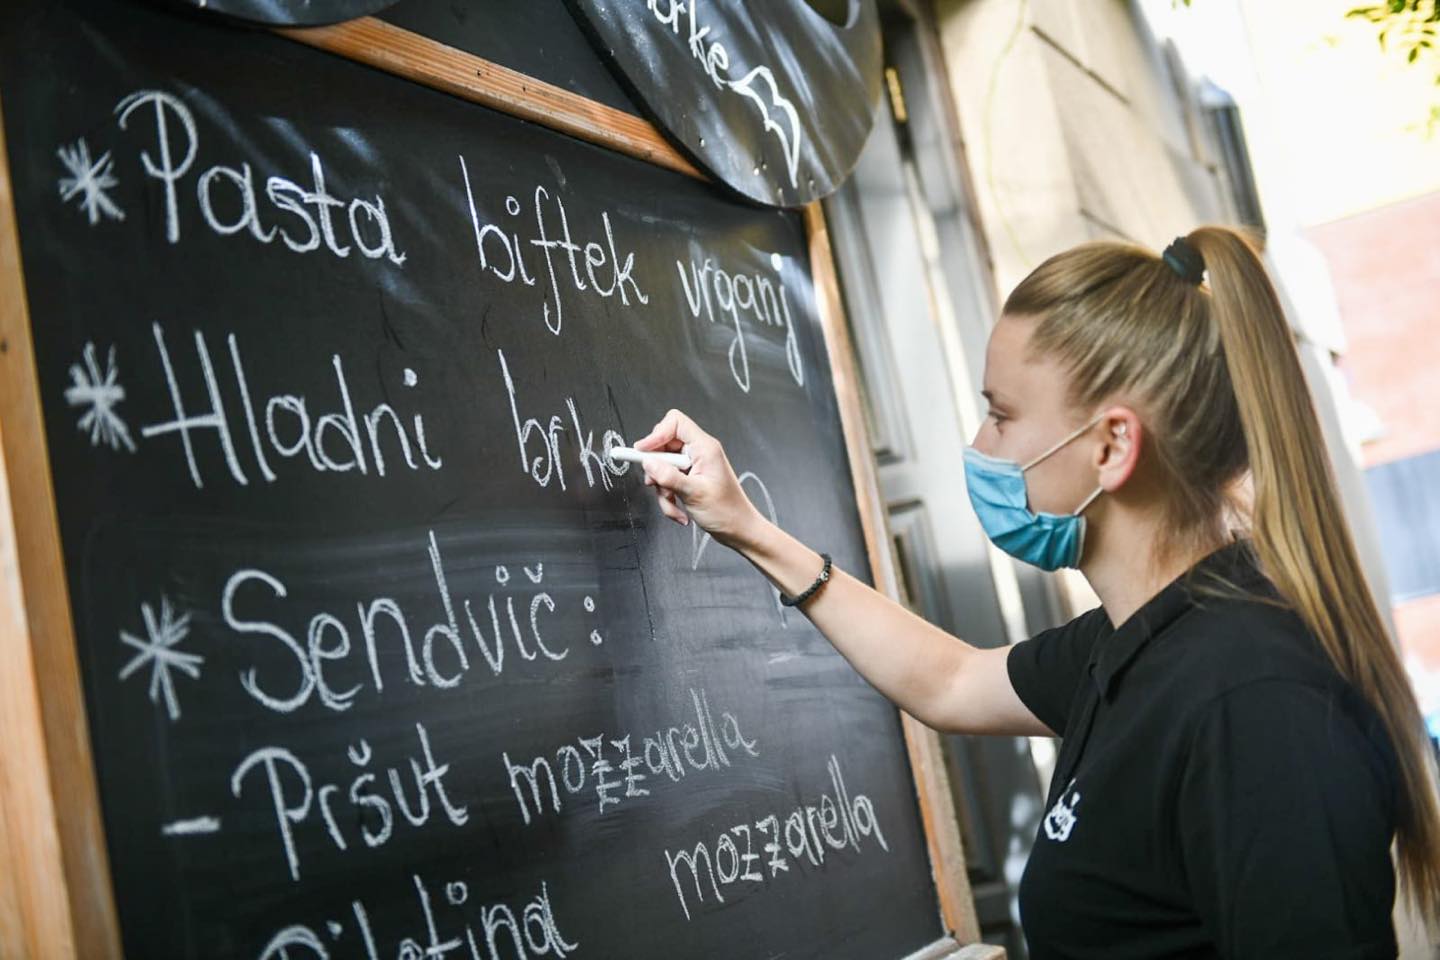 brke
* Pasta biftek vrganj
* Hladni brke
* Sendvič:
- Pršut mozzarella
Piletina mozzarella